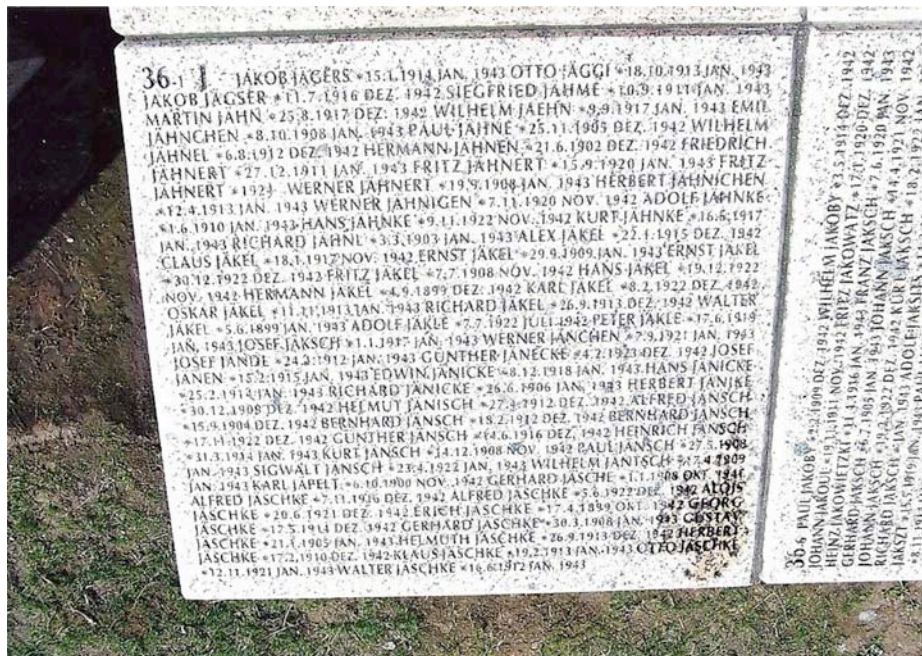 36-1 J JAKOB JÄGERS *15.1.1914 JAN. 1943 OTTO JÄGGI *18.10.1913 JAN. 1943
JAKOB JÄGSER *11.7.1916 DEZ. 1942 SIEGFRIED JÄHME *10.9.1911 JAN. 1943
MARTIN JÄHN *25.8.1917 DEZ. 1942 WILHELM JAEHN *9.9.1917 JAN. 1943 EMIL
JÄHNCHEN *8.10.1908 JAN. 1943 PAUL JÄHNE *25.11.1905 DEZ. 1942 WILHELM
JÄHNEL *6.8.1912 DEZ. 1942 HERMANN JÄHNEN *21.6.1902 DEZ. 1942 FRIEDRICH
JÄHNERT *27.12.1911 JAN. 1943 FRITZ JÄHNERT *15.9.1920 JAN. 1943 FRITZ
JÄHNERT *1923 WERNER JÄHNERT *19.9.1908 JAN. 1943 HERBERT JÄHNICHEN
*12.4.1913 JAN. 1943 WERNER JÄHNIGEN *7.11.1920 NOV. 1942 ADOLF JÄHNKE
*1.6.1910 JAN. 1943 HANS JÄHNKE *9.11.1922 NOV. 1942 KURT JÄHNKE *16.5.1917
JAN. 1943 RICHARD JÄHNL *3.3.1903 JAN. 1943 ALEX JÄKEL *22.1.1915 DEZ. 1942
CLAUS JÄKEL *18.1.1917 NOV. 1942 ERNST JÄKEL *29.9.1909 JAN. 1943 ERNST JÄKEL
*30.12.1922 DEZ. 1942 FRITZ JÄKEL *7.7.1908 NOV. 1942 HANS JÄKEL *19.12.1922
NOV. 1942 HERMANN JÄKEL *4.9.1899 DEZ. 1942 KARL JÄKEL *8.2.1922 DEZ. 1942
OSKAR JÄKEL *11.11.1913 JAN. 1943 RICHARD JÄKEL *26.9.1913 DEZ. 1942 WALTER
JÄKEL *5.6.1899 JAN. 1943 ADOLF JÄKLE *7.7.1922 JULI 1942 PETER JÄKLE *17.6.1919
JAN. 1943 JOSEF JÄKSCH *1.1.1917 JAN. 1943 WERNER JÄNCHEN *7.9.1921 JAN. 1943
JOSEF JÄNDE *24.2.1912 JAN. 1943 GÜNTHER JÄNECKE *4.2.1923 DEZ. 1942 JOSEF
JÄNEN *15.2.1915 JAN. 1943 EDWIN JÄNICKE *8.12.1918 JAN. 1943 HANS JÄNICKE
*25.2.1914 JAN. 1943 RICHARD JÄNICKE *26.6.1906 JAN. 1943 HERBERT JÄNIKE
*30.12.1908 DEZ. 1942 HELMUT JÄNISCH *27.4.1912 DEZ. 1942 ALFRED JÄNSCH
*15.9.1904 DEZ. 1942 BERNHARD JÄNSCH *18.2.1912 DEZ. 1942 BERNHARD JÄNSCH
*17.11.1922 DEZ. 1942 GÜNTHER JÄNSCH *14.6.1916 DEZ. 1942 HEINRICH JÄNSCH
*31.3.1914 JAN. 1943 KURT JÄNSCH *14.12.1908 NOV. 1942 PAUL JÄNSCH *27.5.1908
JAN. 1943 SIGWALT JÄNSCH *23.4.1922 JAN. 1943 WILHELM JÄNTSCH *17.4.1909
JAN. 1943 KARL JÄPELT *6.10.1900 NOV. 1942 GERHARD JÄSCHE *1.1.1908 OKT.
ALFRED JÄSCHKE *7.11.1916 DEZ. 1942 ALFRED JÄSCHKE *5.6.1922 DEZ. 1942 ALOIS
JÄSCHKE *20.6.1921 DEZ. 1942 ERICH JÄSCHKE *17.4.1899 OKT. 1942 GEORG
JÄSCHKE *17.5.1914 DEZ. 1942 GERHARD JÄSCHKE *30.3.1908 JAN. 1943 GUSTAV
JÄSCHKE *21.1.1905 JAN. 1943 HELMUTH JÄSCHKE *26.9.1913 DEZ. 1942 HERBERT
JÄSCHKE *17.2.1910 DEZ. 1942 KLAUS JÄSCHKE *19.2.1913 JAN. 1943 OTTO JÄSCHKE
*12.11.1921 JAN. 1943 WALTER JÄSCHKE *16.6.1912 JAN. 1943
36-6 PAUL JAKOBY *3.2.1909 DEZ. 1942 WILHELM JAKOBY *3.5.1914 DEZ. 1942
JOHANN JAKOUL *19.11.1911 NOV. 1942 FRITZ JAKOWATZ *17.11.1920 DEZ. 1942
HEINZ JAKOWIETZKI *11.4.1916 JAN. 1943 FRANZ JAKSCH *7.6.1920 JAN. 1943
GERHARD JAKSCH *6.2.1905 JAN. 1943 JOHANN JAKSCH *14.4.1921 NOV. 1942
JOHANN JAKSCH *19.2.1922 DEZ. 1942 KURT JAKSCH
RICHARD JAKSCH
JAKSZT